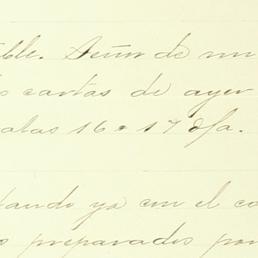 ble. Señor de mi
cartas de ayer
alas 16 o 17 d/a.
tando ya con el co
s preparados por